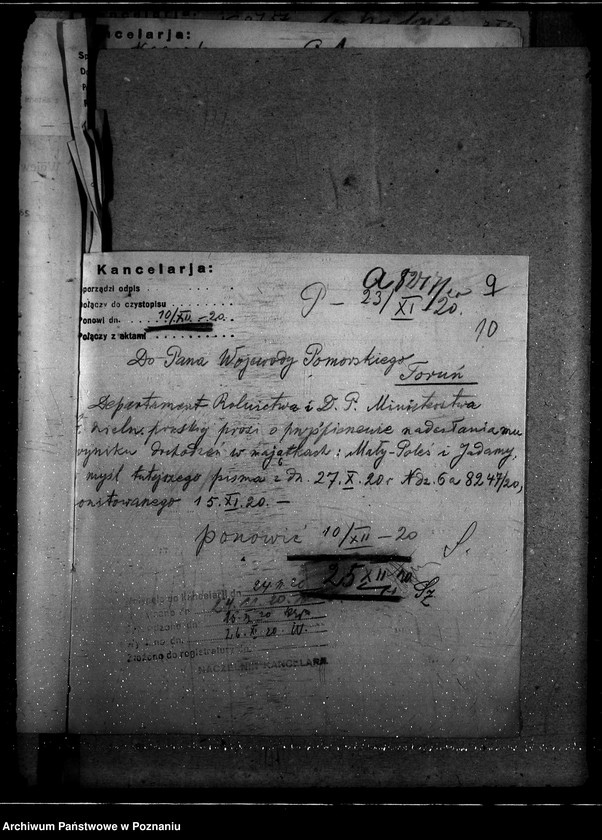 ancelarja:
Kancelarja:
porządzi odpis
ołączy do czystopisu
Ponowi dn. 10/XII - 20.
Połączy z aktami
P - 23/XI 20.
a 8247/20
9
10
Do Pana Wojewody Pomorskiego
Toruń
Departament Rolnictwa i D. P. Ministerstwa
b. dzieln. pruskiej prosi o przyśpieszenie nadesłania mu
wyniku dochodzeń w majątkach: Mały-Poleś i Jadamy,
myśl tutejszego pisma z dn. 27.X.20 r Ndz. 6a 8247/20,
onitowanego 15.XI.20. -
ponowić 10/XII - 20
S.
25 XII 20
Sz
do kancelarji dn. 24.XI 20
26.XI 20. W.
Złożono do registratury dn.
NACZELNIK KANCELARJI.
Archiwum Państwowe w Poznaniu